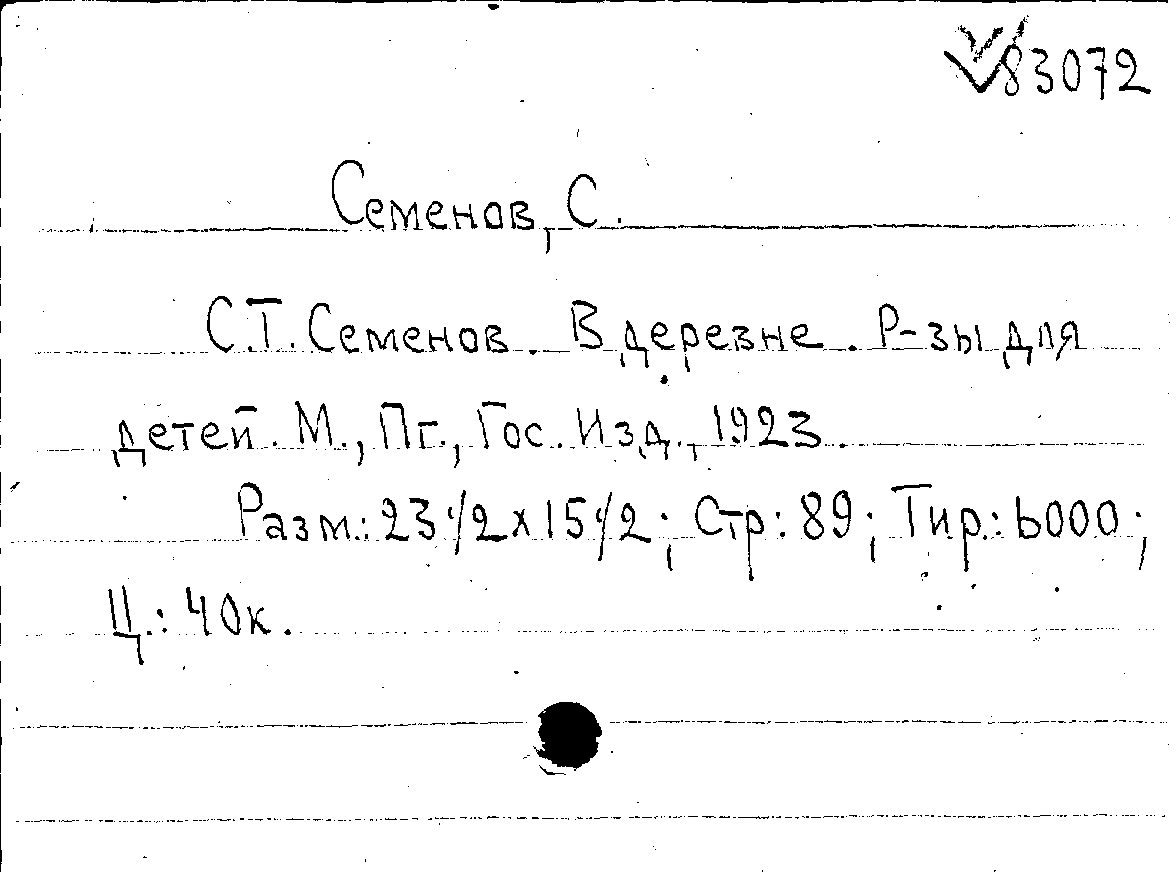 83072
Семенов, С.
С.Т. Семенов. В деревне. Р-зы для
детей. М., Пг., Гос. Изд., 1923.
Разм.: 23 1/2 х 15 1/2; Стр: 89; Тир.: 6000;
Ц.: 40к.